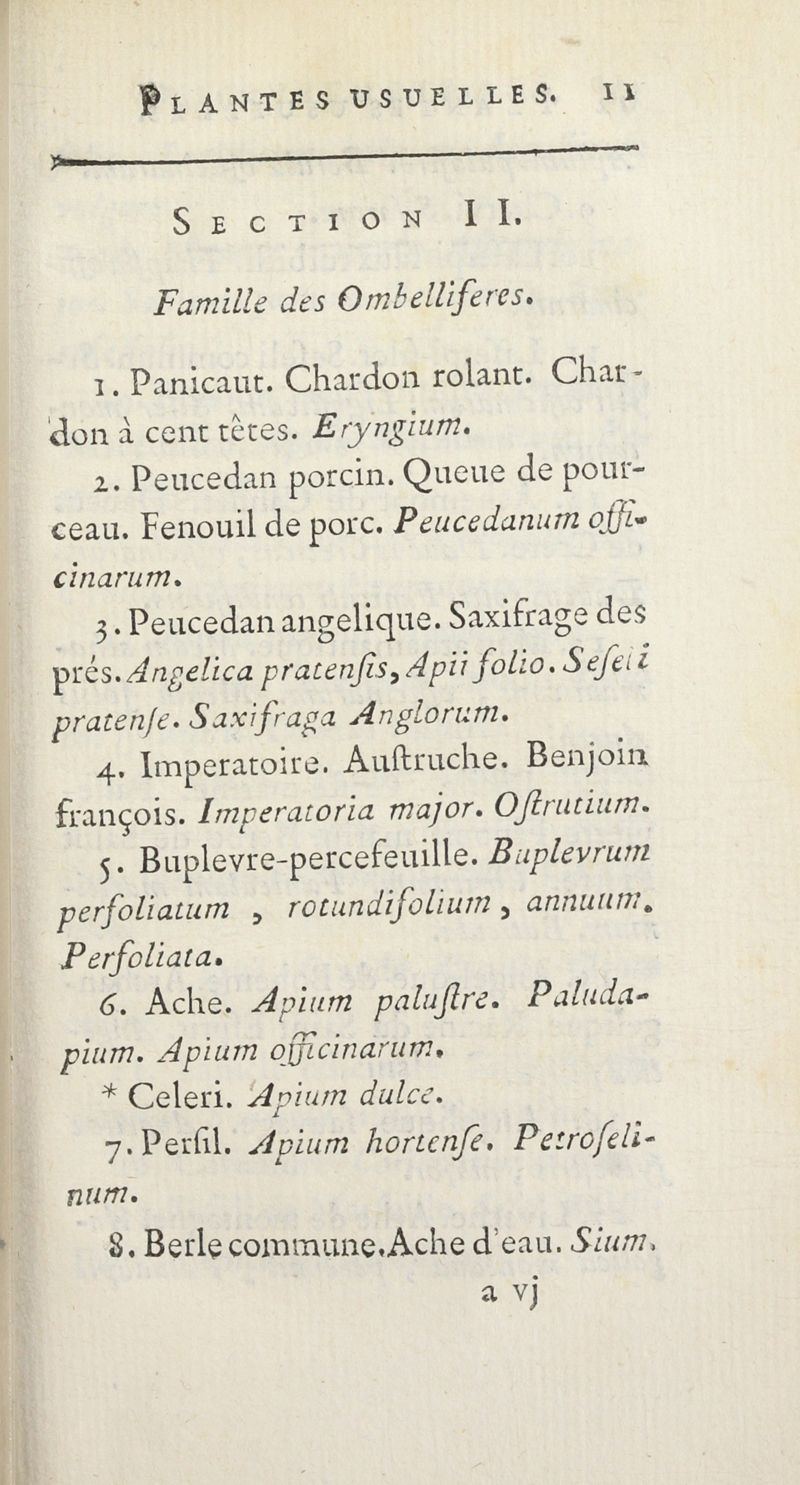 PLANTES USUELLES. 11
SECTION II.
Famille des Ombelliferes.
1. Panicaut. Chardon rolant. Char-
don à cent têtes. Eryngium.
2. Peucedan porcin. Queue de pour-
ceau. Fenouil de porc. Peucedanum offi-
cinarum.
3. Peucedan angelique. Saxifrage des
prés. Angelica pratenſis, Apii folio. Seſeli
pratenſe. Saxifraga Anglorum.
4. Imperatoire. Auſtruche. Benjoin
françois. Imperatoria major. Oſtrutium.
5. Buplevre-percefeuille. Buplevrum
perfoliatum , rotundifolium , annuum.
Perfoliata.
6. Ache. Apium paluſtre. Paluda-
pium. Apium officinarum.
* Celeri. Apium dulce.
7. Perſil. Apium hortenſe. Petroſeli-
num.
8. Berle commune. Ache d'eau. Sium.
a vj